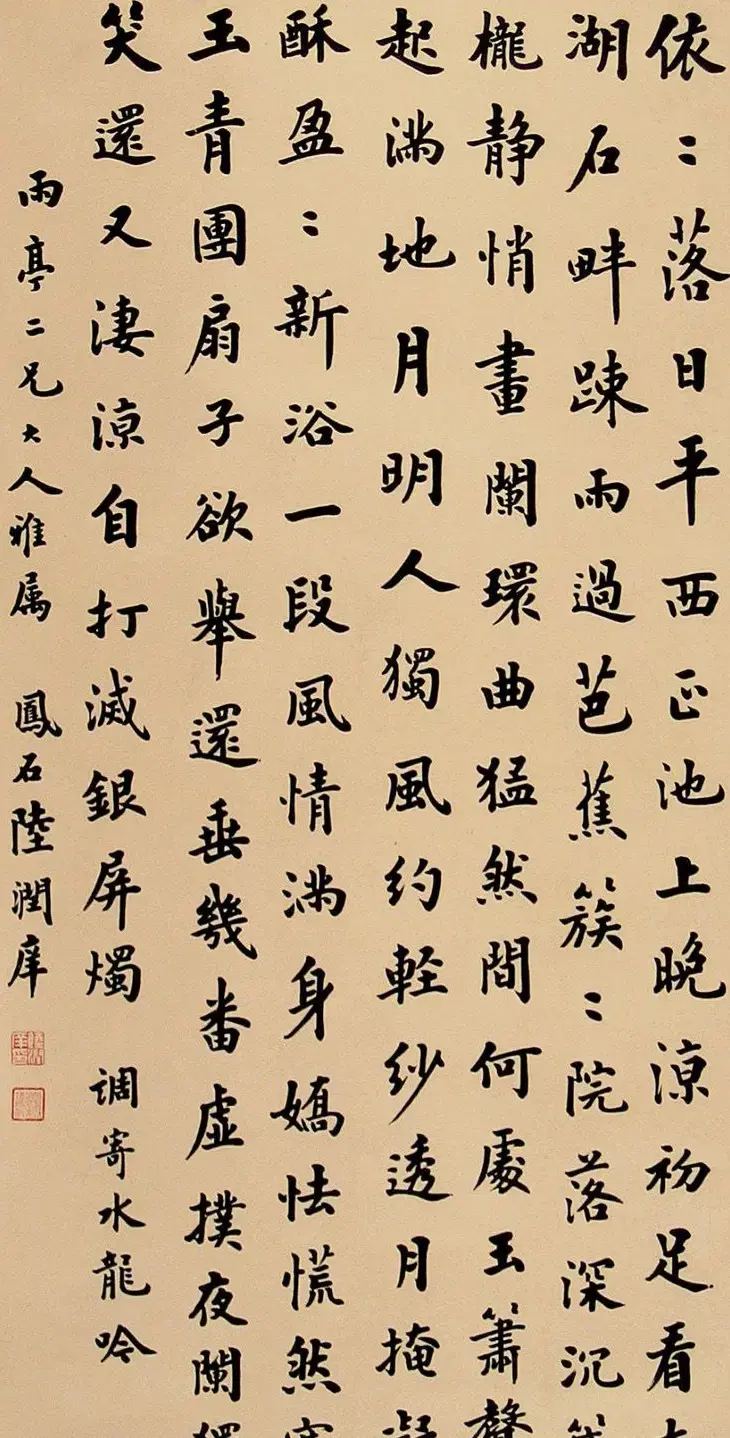 依〻落日平西正池上晚涼初足看
湖石畔踈雨過芭蕉簇〻院落深沉
櫳静悄畫闌環曲猛然間何處玉簫聲
起滿地月明人獨風約輕紗透月掩
酥盈〻新浴一段風情滿身嬌怯慌然
玉青團扇子欲舉還垂幾番虛撲夜闌
笑還又淒涼自打滅銀屏燭 調寄水龍吟
雨亭二兄大人雅属 鳳石陸潤庠